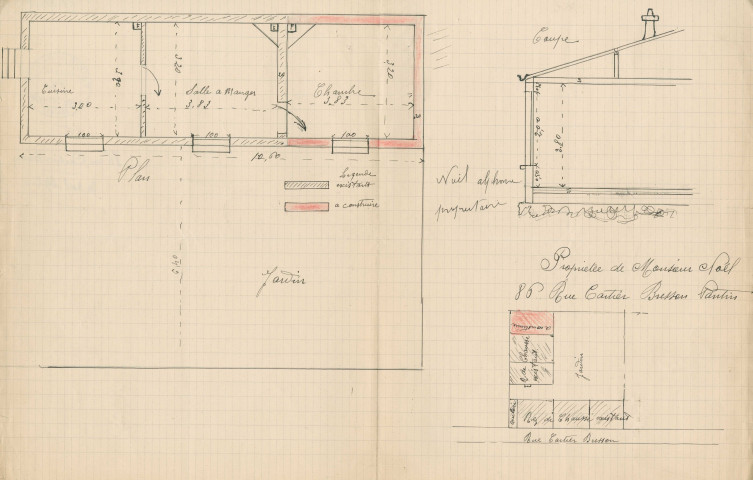 Cuisine
3,00
3,20
Salle a Manger
3,83
3,20
Chambre
3,83
3,20
100
100
100
10,60
Plan
Legende
existant
a construire
Jardin
Coupe
2,00
2,80
0,80
Noël alphonse
propriétaire
Propriétée de Monsieur Noël
86 Rue Cartier Bresson Pantin
Jardin
R. de Chaussé
existant
Rez de Chaussé existant
Rue Cartier Bresson